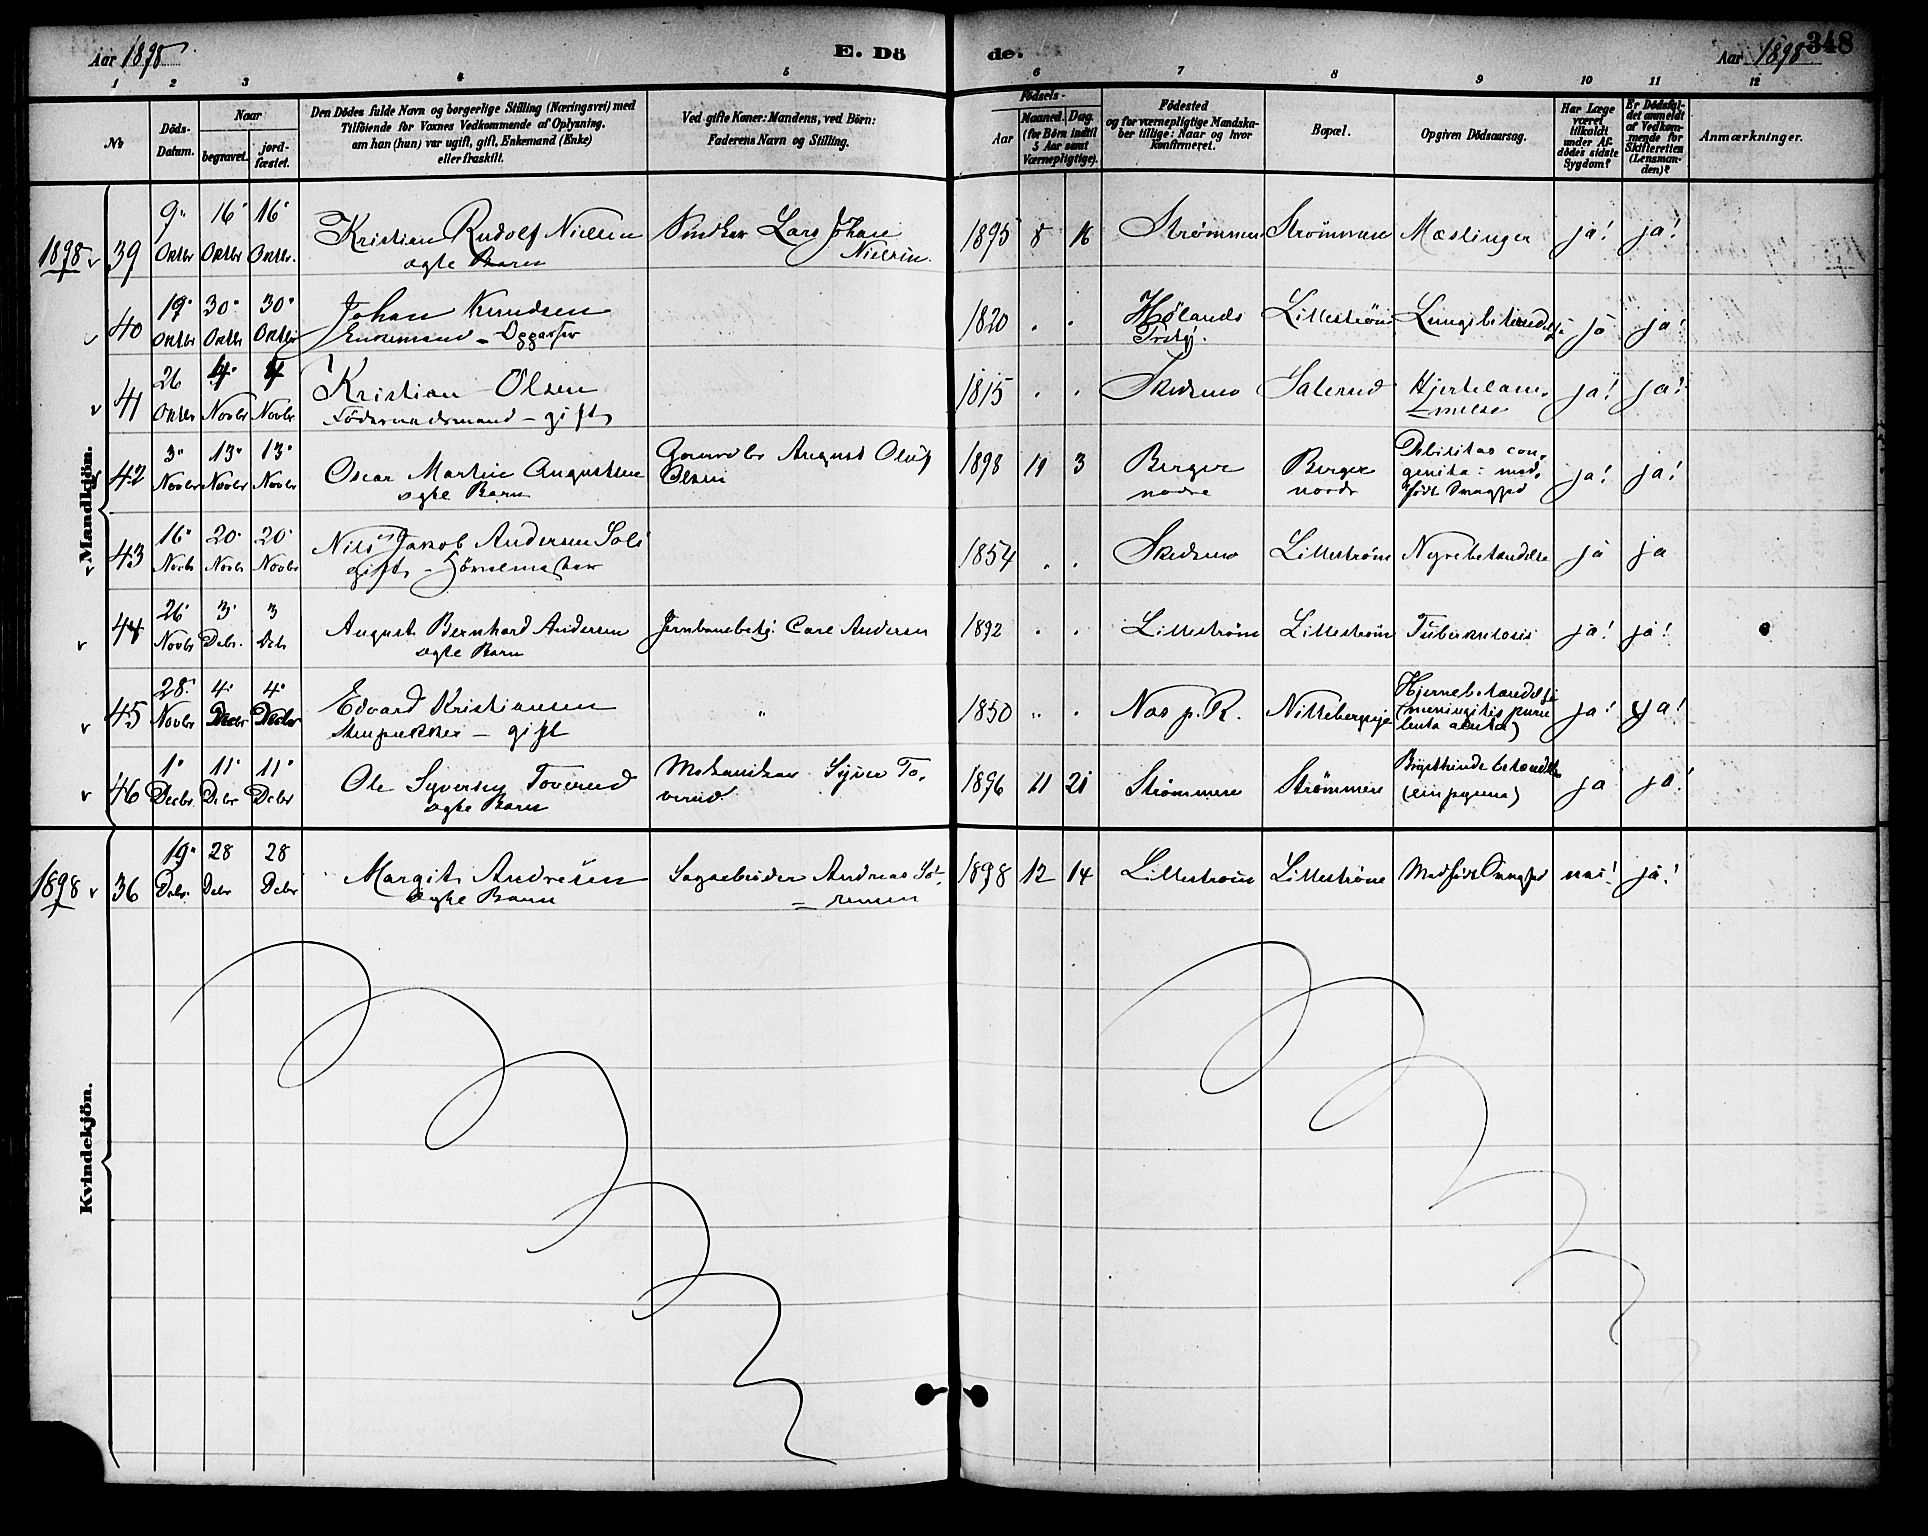 Aar 1898
E. Dö
de.
Aar 1898
348
1 2 3 4 5 6 7 8 9 10 11 12
No
Döds-
Datum.
Naar
begravet.
jord-
fæstet.
Den Dödes fulde Navn og borgerlige Stilling (Næringsvei) med
Tilföiende for Voxnes Vedkommende af Oplysning,
om han (hun) var ugift, gift, Enkemand (Enke)
eller fraskilt.
Ved gifte Koner: Mandens, ved Börn:
Faderens Navn og Stilling.
Födsels-
Aar
Maaned.
Dag.
(for Börn indtil
5 Aar samt
Værnepligtige).
Födested
og for værnepligtige Mandska-
ber tillige: Naar og hvor
Konfirmeret.
Bopæl.
Opgiven Dödsaarsag.
Har Læge
været
tilkaldt
under Af-
dödes sidste
Sygdom?
Er Dödsfal-
det anmeldt
af Vedkom-
mende for
Skifteretten
(Lensman-
den)?
Anmærkninger.
Mandkjön.
1898 39 9. Oktbr 16. Oktbr 16. Oktbr. Kristian Rudolf Nielsen Snedker Lars Johan 1895 8 16 Strømmen Strømmen Mæslinger ja! ja!
ægte Barn Nielsen.
40 19. Oktbr 30. Oktbr 30. Oktbr Johan Knudsen 1820 . . Hølands Lillestrøm Lungebetændelse ja ja!
Enkemand -
41 26 Oktbr 4. Novbr 4 Novbr Kristian Olsen 1815 . . Skedsmo Saterud Hjertelam- ja! ja!
Föderaadsmand - gift melse
42 3. Novbr 13. Novbr 13. Novbr Oscar Martin Augustsen August Oluf 1898 11 3 Berger Berger Debilitas con- ja! ja!
ægte Barn Olsen nordre nordre genita: med-
født Svaghed
43 16. Novbr 20. Novbr 20. Novbr Nils Jakob Andersen Soli 1854 . . Skedsmo Lillestrøm Nyrebetændelse ja ja
gift -
44 26. Novbr 3. Debr. 3 Debr August Bernhard Andersen Jernbanebetj. Carl Andersen 1892 . . Lillestrøm Lillestrøm Tuberkulosis ja! ja!
ægte Barn
45 28. Novbr 4. Decbr 4. Decbr Edvard Kristiansen " 1850 " . Næs p. R. Hjernebetændelse ja! ja!
- gift (meningitis puru-
lenta acuta)
46 1. Decbr. 11. Debr 11. Debr Ole Syversen Toverud Mekaniker Syver To- 1896 11 21 Strømmen Strømmen Brysthindebetændelse ja ja!
ægte Barn verud (empyema)
Kvindekjön.
1898 36 19. Debr. 28 Debr 28 Debr Margit Andresen Sagarbeider Andreas Sö- 1898 12 14 Lillestrøm Lillestrøm Medfødt Svaghed nei! ja!
ægte Barn = rensen